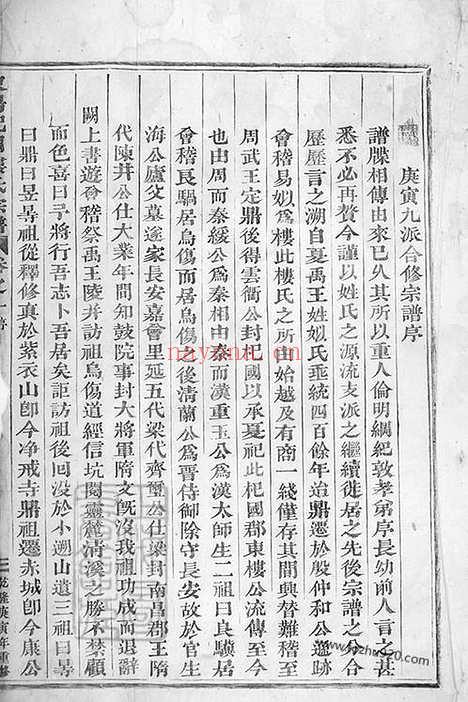 庚寅九派合修宗譜序
譜牒相傳由來已久其所以重人倫明綱紀敦孝弟序長幼前人言之甚
悉不必再贅今謹以姓氏之源流支派之繼續徙居之先後宗譜之分合
歷歷言之溯自夏禹王姓姒氏垂統四百餘年迨鼎遷於殷仲和公遯跡
會稽易姒爲樓此樓氏之所由始越及有商一綫僅存其間興替難稽至
周武王定鼎後得雲衢公封杞國以承夏祀此杞國郡東樓公流傳至今
也由周而秦綬公爲秦相由秦而漢重玉公爲漢太師生二祖曰良驥居
會稽艮驕居烏傷而居烏傷後淸蘭公爲晋侍御除守長安故於官生
海公廬父墓遂家長安嘉會里延五代梁代齊璽公仕梁封南昌郡王隋
代陳井公仕大業年間知鼓院事封大將軍隋文旣沒我祖功成而退辭
闕上書遊會稽祭禹王陵并訪祖烏傷道經信坑閱靈麓淸溪之勝不禁顧
而色喜曰予將行吾志卜吾居矣詎訪祖後回沒於小遡山遺三祖曰昪
曰鼎曰昱昪祖從釋修眞於紫衣山卽今净戒寺鼎祖遷赤城卽今康公
卷之一 序
三 乾隆庚寅年重修
nayona.cn
pzhulu20.com